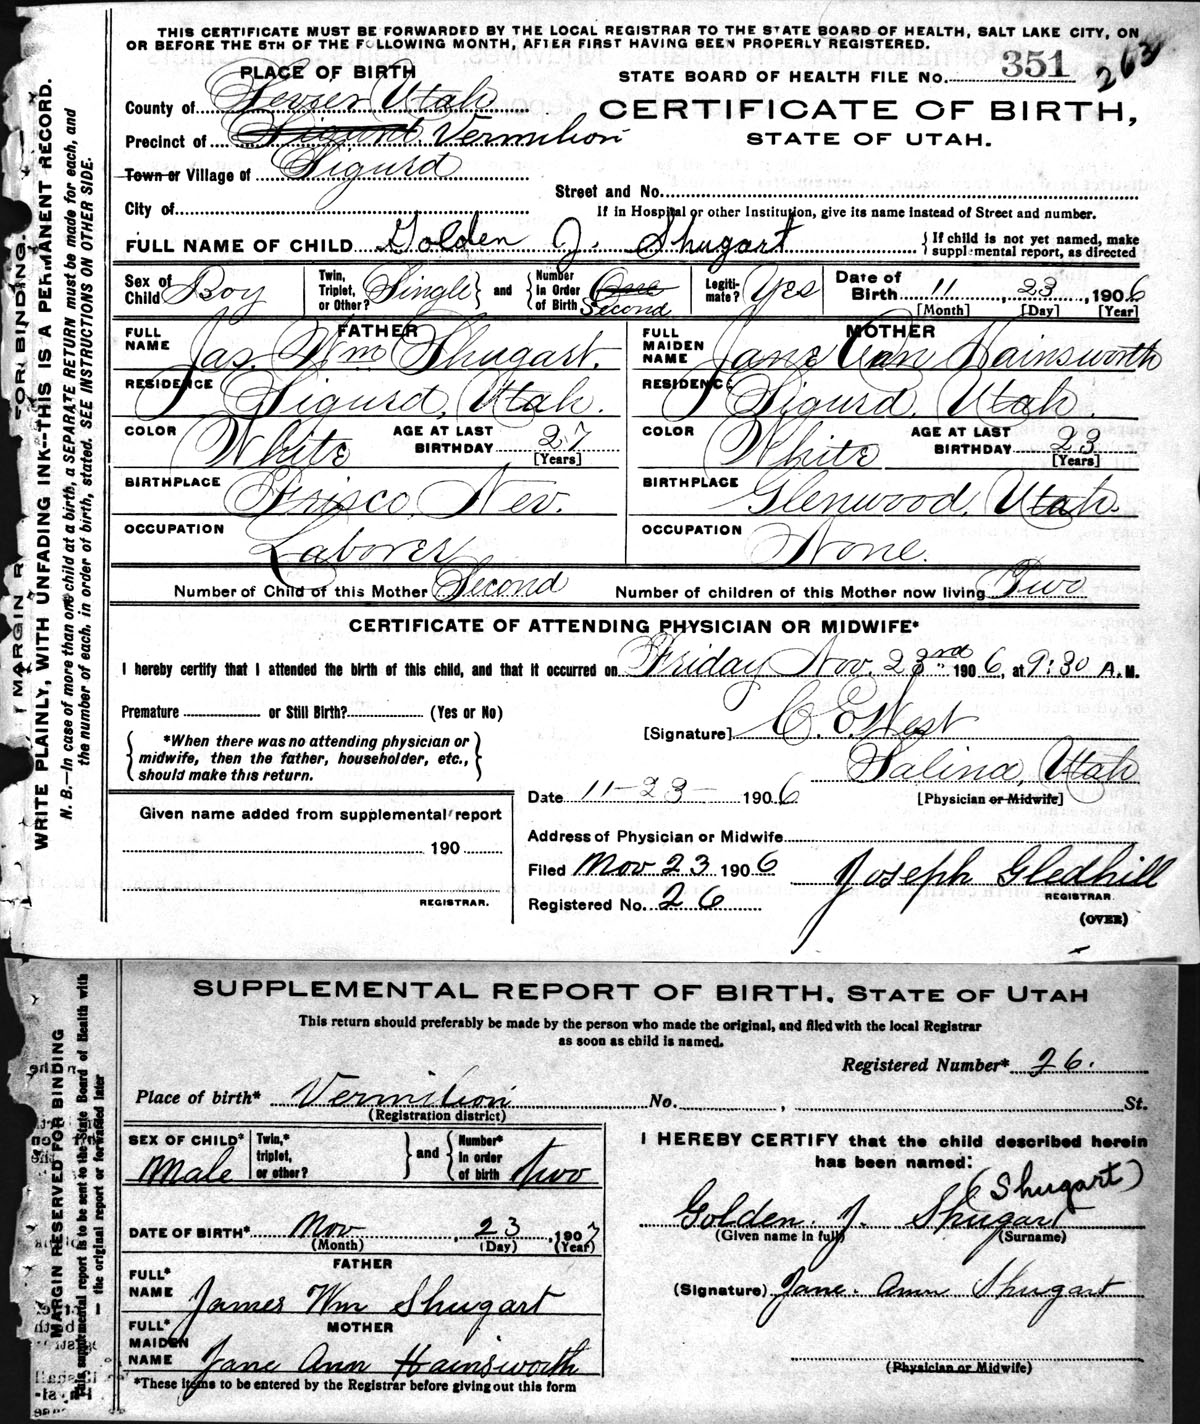 THIS CERTIFICATE MUST BE FORWARDED BY THE LOCAL REGISTRAR TO THE STATE BOARD OF HEALTH, SALT LAKE CITY, ON
OR BEFORE THE 5TH OF THE FOLLOWING MONTH, AFTER FIRST HAVING BEEN PROPERLY REGISTERED.
PLACE OF BIRTH
STATE BOARD OF HEALTH FILE No. 351 263
County of Sevier Utah
CERTIFICATE OF BIRTH,
STATE OF UTAH.
Precinct of Sigurd Vermilion
Town or Village of Sigurd
Street and No.
City of
If in Hospital or other Institution, give its name instead of Street and number.
FULL NAME OF CHILD Golden J. Shugart { If child is not yet named, make supplemental report, as directed
Sex of Child Boy Twin, Triplet, or Other? Single } and { Number in Order of Birth One Second Legitimate? Yes Date of Birth 11, 23, 1906
[Month] [Day] [Year]
FATHER MOTHER
FULL NAME Jas. Wm Shugart. FULL MAIDEN NAME Jane Ann Hainsworth
RESIDENCE Sigurd, Utah. RESIDENCE Sigurd, Utah.
COLOR White AGE AT LAST BIRTHDAY 27 [Years] COLOR White AGE AT LAST BIRTHDAY 23 [Years]
BIRTHPLACE Frisco Nev. BIRTHPLACE Glenwood, Utah.
OCCUPATION Laborer OCCUPATION None.
Number of Child of this Mother Second Number of children of this Mother now living Two
CERTIFICATE OF ATTENDING PHYSICIAN OR MIDWIFE*
I hereby certify that I attended the birth of this child, and that it occurred on Friday Nov. 23rd 1906, at 9:30 A.M.
Premature or Still Birth? (Yes or No)
[Signature] C. E. West
*When there was no attending physician or
midwife, then the father, householder, etc.,
should make this return.
Salina, Utah
Date 11-23- 1906 [Physician or Midwife]
Given name added from supplemental report
190
REGISTRAR.
Address of Physician or Midwife
Filed Nov 23 1906 Joseph Gledhill
REGISTRAR
Registered No. 26
(OVER)
MARGIN R FOR BINDING.
WRITE PLAINLY, WITH UNFADING INK--THIS IS A PERMANENT RECORD.
N. B.—In case of more than one child at a birth, a SEPARATE RETURN must be made for each, and
the number of each, in order of birth, stated. SEE INSTRUCTIONS ON OTHER SIDE.
SUPPLEMENTAL REPORT OF BIRTH, STATE OF UTAH
This return should preferably be made by the person who made the original, and filed with the local Registrar
as soon as child is named.
Registered Number* 26.
Place of birth* Vermilion No. , St.
(Registration district)
SEX OF CHILD* Male Twin,* triplet, or other? } and { Number* in order of birth two
I HEREBY CERTIFY that the child described herein
has been named:
(Shugart)
Golden. J. Shugart
(Given name in full) (Surname)
DATE OF BIRTH* Nov , 23 , 1907
(Month) (Day) (Year)
FATHER
FULL* NAME James Wm Shugart
(Signature) Jane. Ann Shugart
MOTHER
FULL* MAIDEN NAME Jane Ann Hainsworth
(Physician or Midwife)
*These items to be entered by the Registrar before giving out this form
MARGIN RESERVED FOR BINDING
This supplemental report is to be sent to the State Board of Health with
the original report or forwarded later